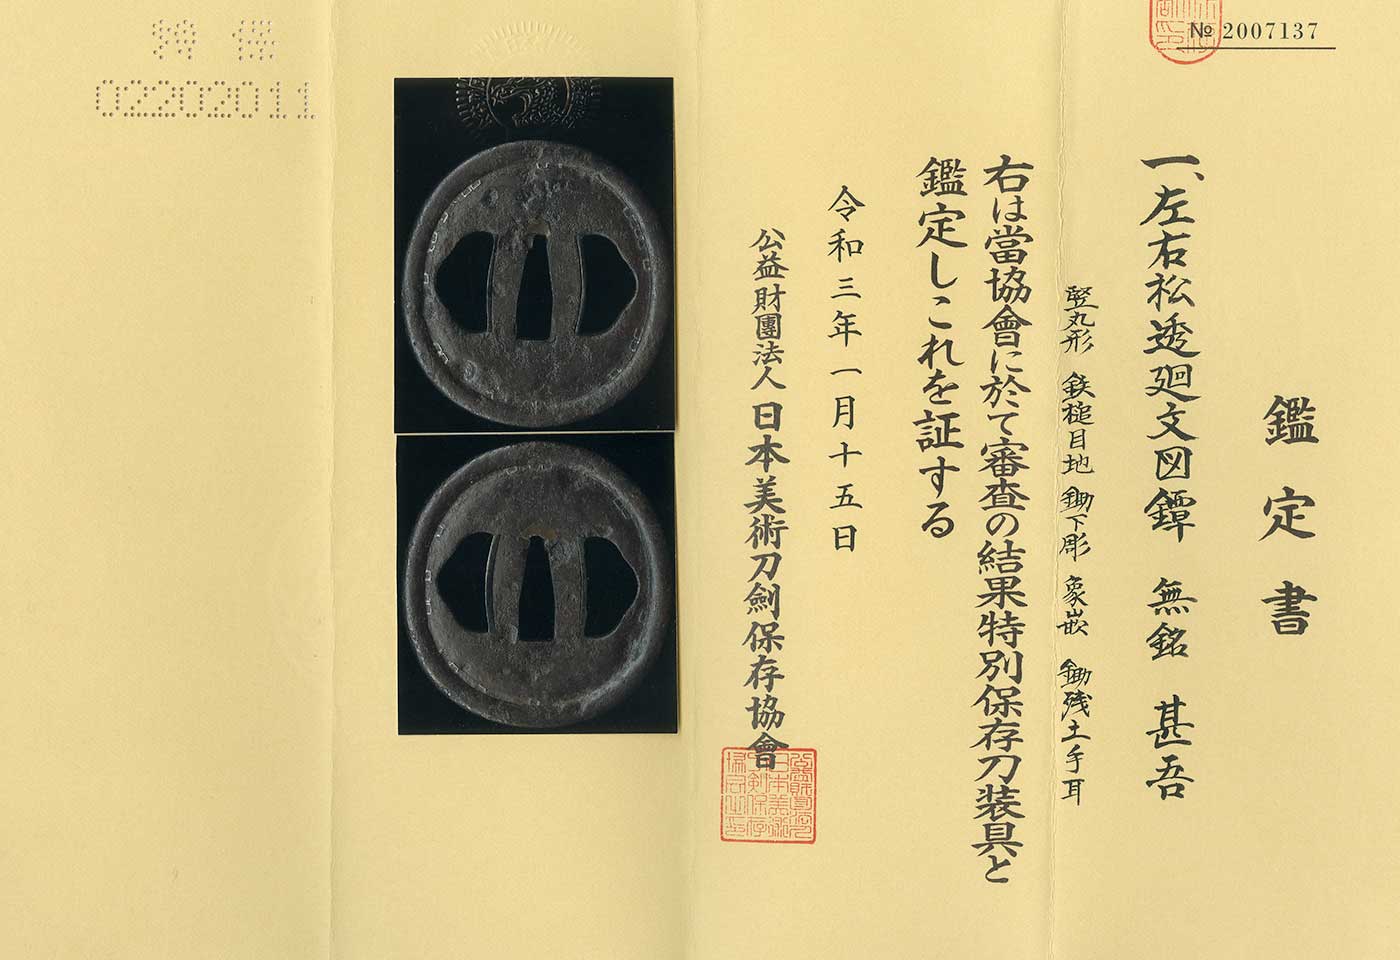 № 2007137
鑑定書
一、左右松透廻文図鐔 無銘 甚吾
竪丸形 鉄槌目地 鋤下彫 象嵌 鋤残土手耳
右は當協會に於て審査の結果特別保存刀装具と
鑑定しこれを証する
令和三年一月十五日
公益財團法人 日本美術刀劍保存協會
特 保
02202011